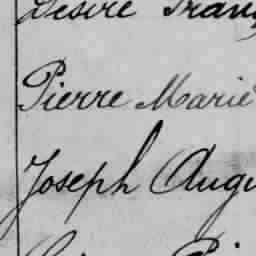 Désiré Franç
Pierre Marie
Joseph Augu